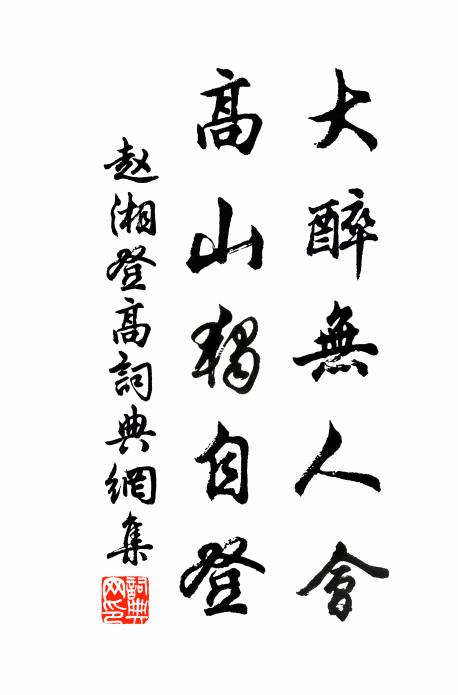 大醉無人會
高山獨自登
赵湘登高詞典網集
詞典网印